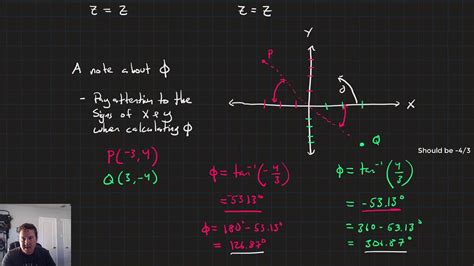 z = z
z = z
A note about φ
- Pay attention to the
signs of x & y
when calculating φ
P(-3,4)
Q(3,-4)
y
P
x
Q
Should be -4/3
φ = tan⁻¹(-4/3)
= -53.13°
φ = 180° - 53.13°
= 126.87°
φ = tan⁻¹(4/3)
= -53.13°
= 360 - 53.13°
= 306.87°